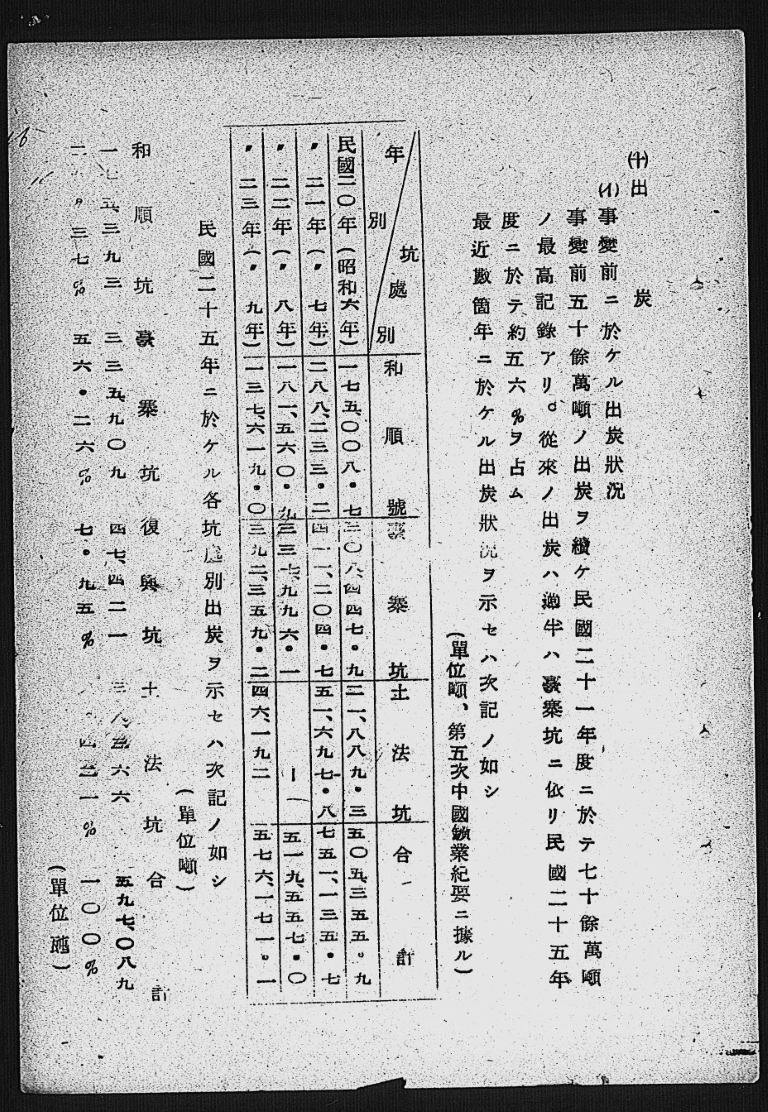 ㈩出炭
(イ)事變前ニ於ケル出炭狀況
事變前五十餘萬噸ノ出炭ヲ續ケ民國二十一年度ニ於テ七十餘萬噸
ノ最高記錄アリ。從來ノ出炭ハ過半ハ臺寨坑ニ依リ民國二十五年
度ニ於テ約五六%ヲ占ム
最近數箇年ニ於ケル出炭狀況ヲ示セハ次記ノ如シ
(單位噸、第五次中國鑛業紀要ニ據ル)
年別 坑處別 和順號 臺寨坑 土法坑 合計
民國二〇年(昭和六年) 一七五、〇〇八・七 三〇八、四四七・九 二一、八八九・三 五〇五、三五五。九
〃 二一年(〃 七年) 二八八、二三三・二 四一一、二〇四・七 五一、六九七・八 七五一、一三五・七
〃 二二年(〃 八年) 一八一、五六〇・九 三三七、九九六・一 ― 五一九、五五七・〇
〃 二三年(〃 九年) 一三七、六一九・〇 三九二、三五九・二 四六、一九二 五七六、一七一。一
民國二十五年ニ於ケル各坑處別出炭ヲ示セハ次記ノ如シ
(單位噸)
和順坑 臺寨坑 復興坑 土法坑 合計
三三五、九〇九 四七、四二一 五九七、〇八九
三七% 五六・二六% 七・九五% 一〇〇%
(單位瓲)